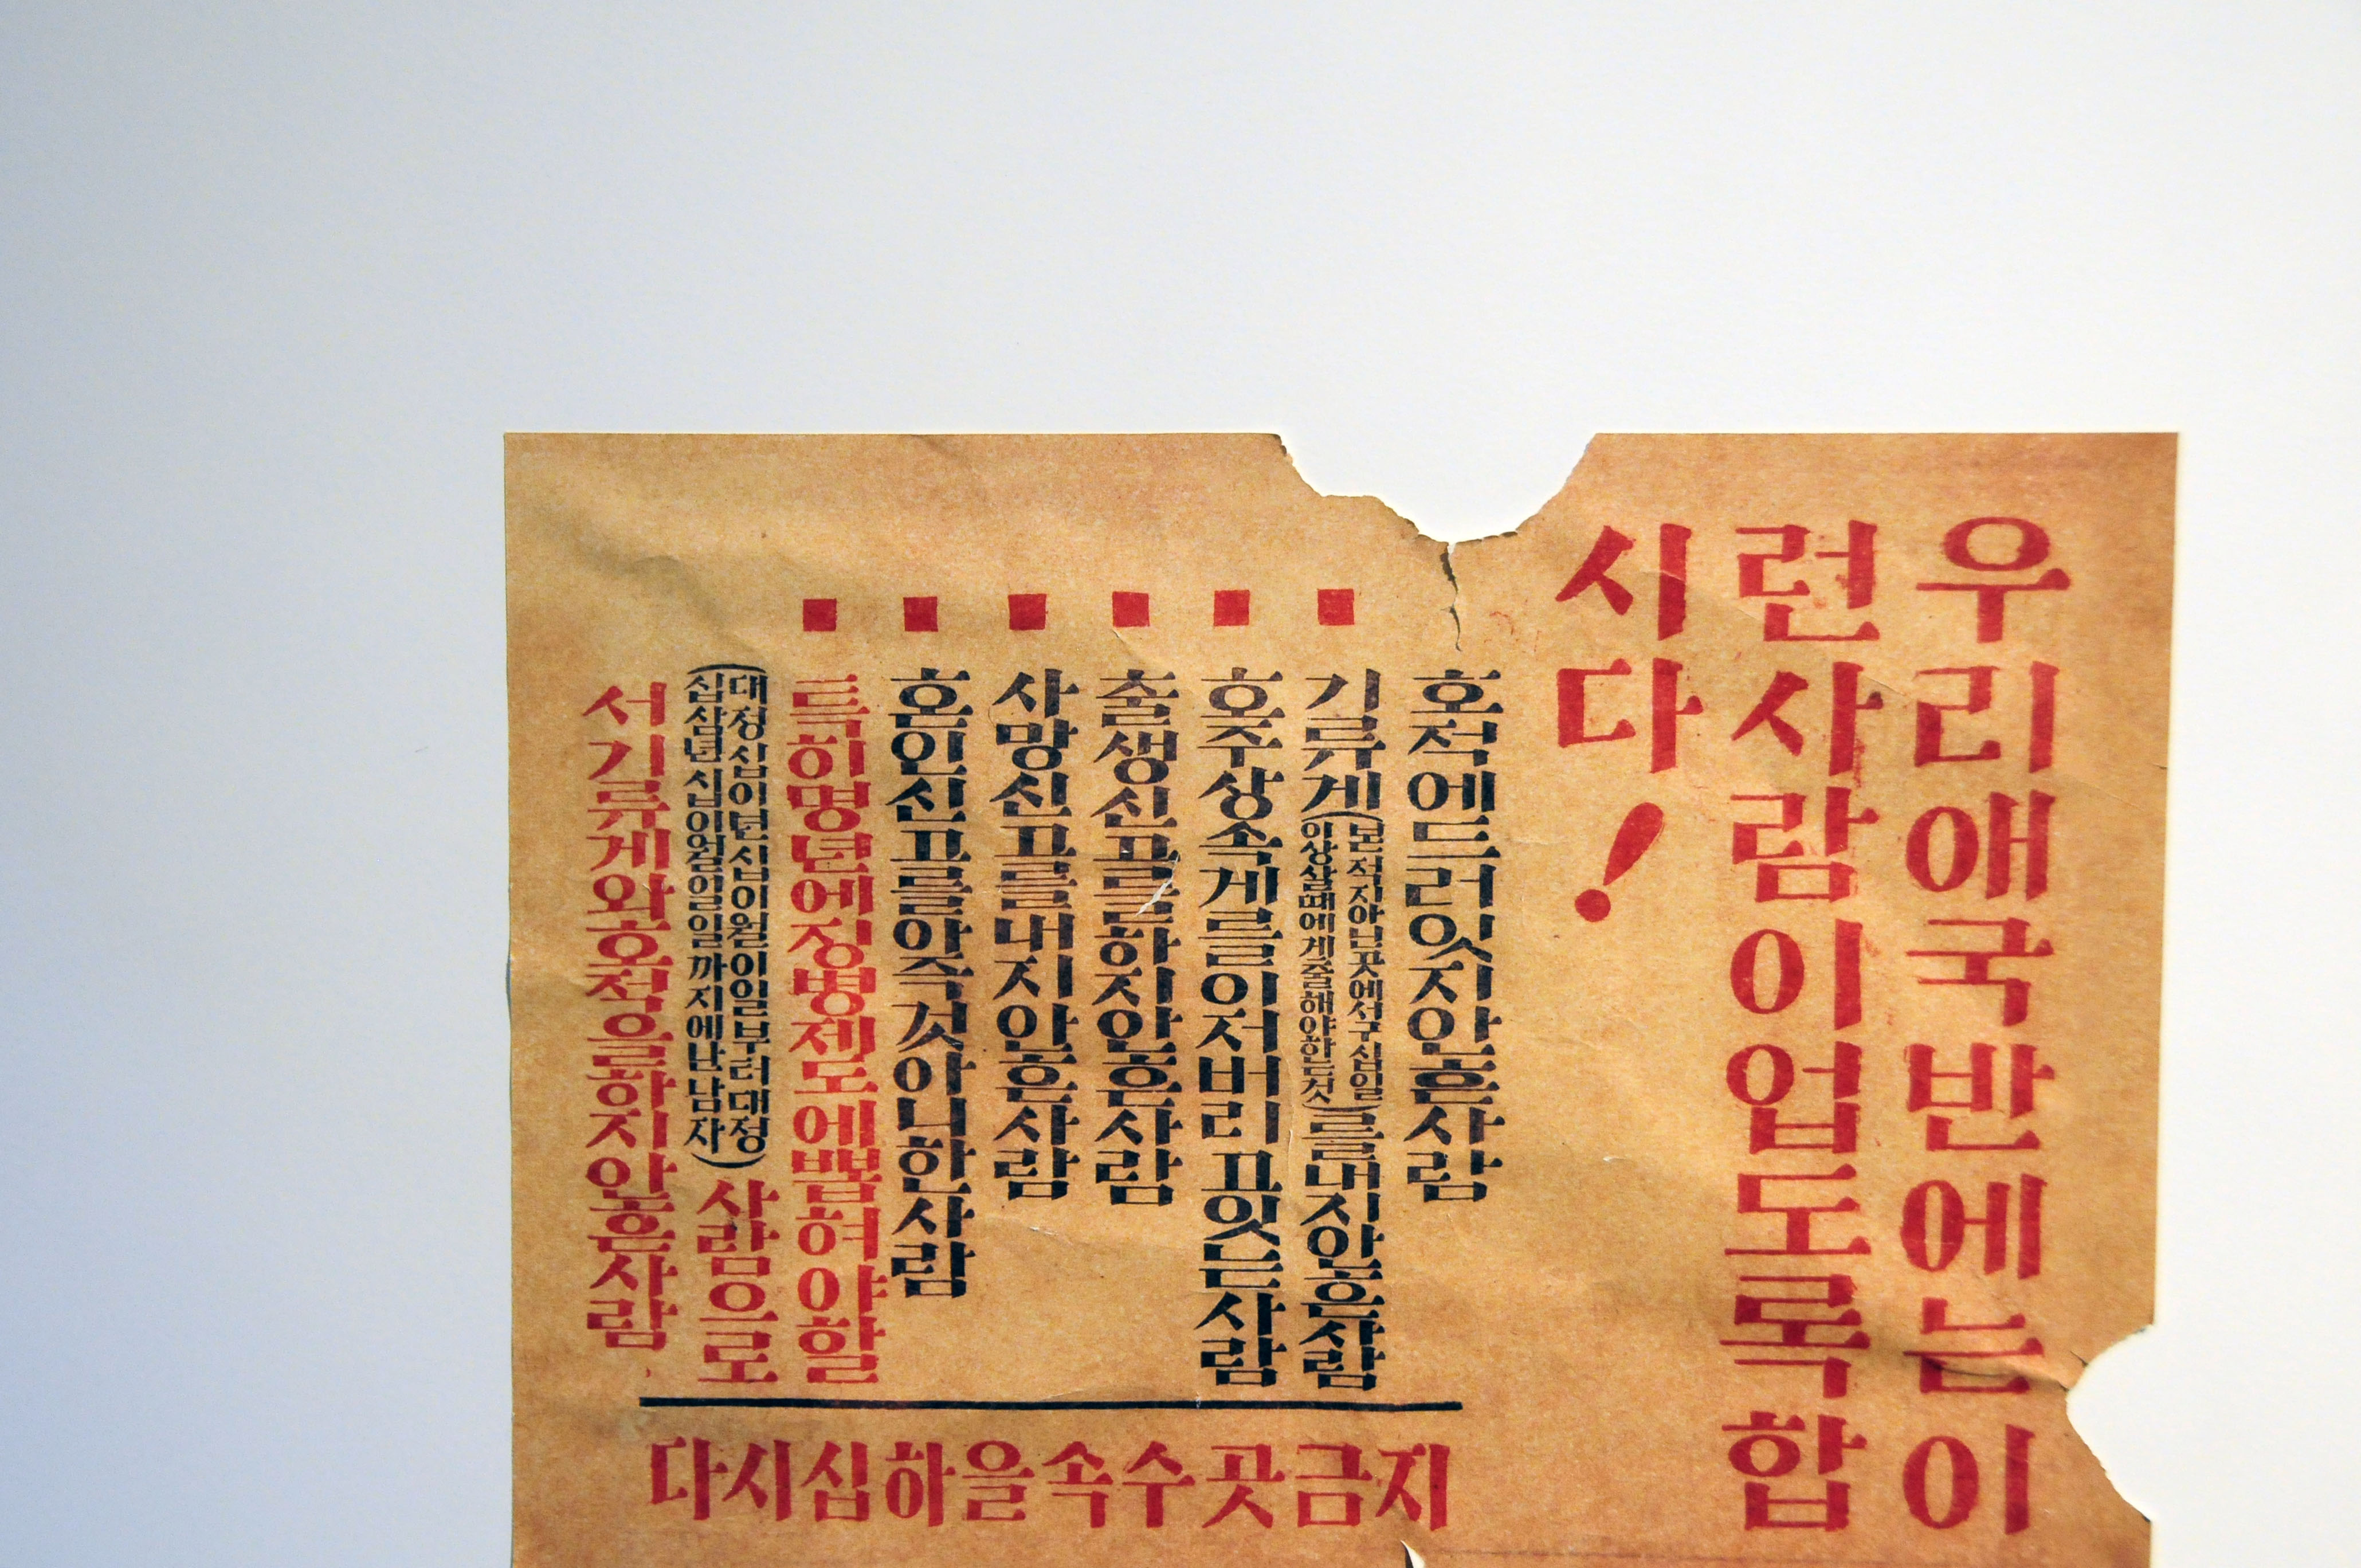 우리애국반에는이
런사람이업도록합
시다!
호적에드러잇지안흔사람
기류게(본적지아닌곳에서구십일이상살때에게출해야한것)를내지안흔사람
호주상속게를잇저버리고잇는사람
출생신고를하지안흔사람
사망신고를내지안흔사람
혼인신고를아즉것아니한사람
특히명년에징병제도에뽑혀야할
(대정십이년십이월이일부터대정십삼년십이월일일까지에난남자)사람으로
서기류게와호적을하지안흔사람
지금곳수속을하십시다